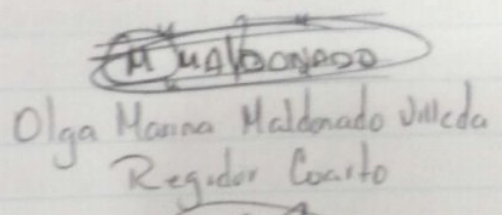 M MALDONADO
Olga Marina Maldonado Villeda
Regidor Cuarto